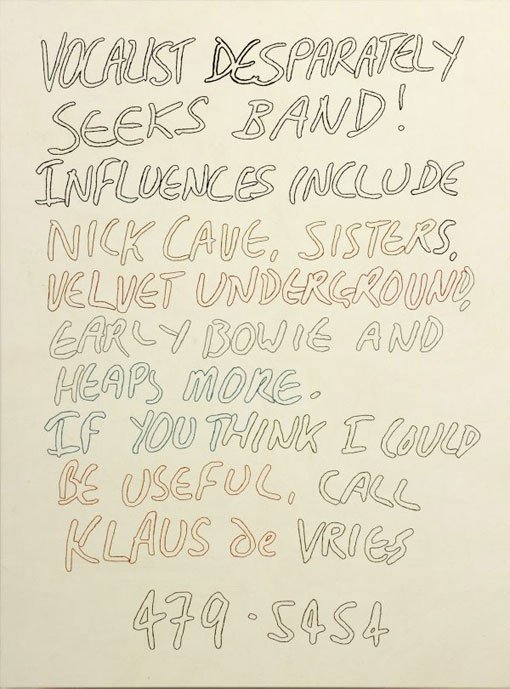 VOCALIST DESPARATELY
SEEKS BAND!
INFLUENCES INCLUDE
NICK CAVE, SISTERS,
VELVET UNDERGROUND,
EARLY BOWIE AND
HEAPS MORE.
IF YOU THINK I COULD
BE USEFUL, CALL
KLAUS de VRIES
479·5454